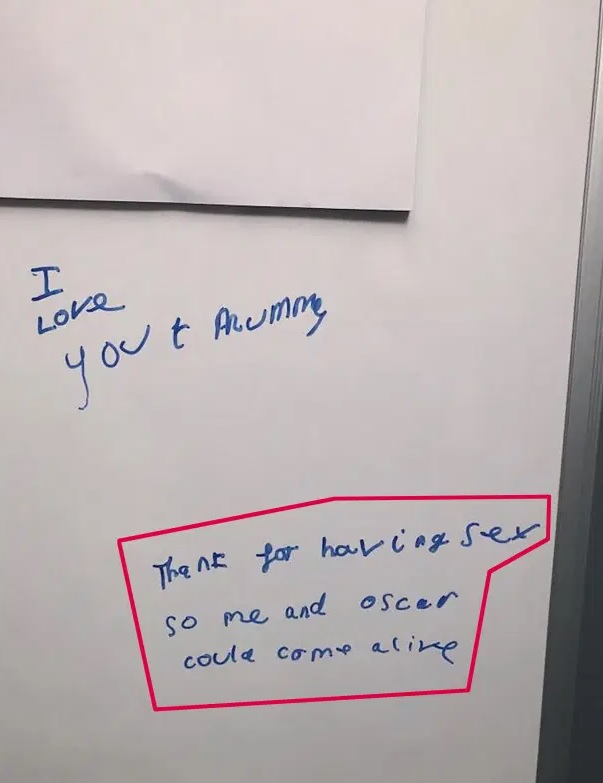 I
Love
you t Mummy
Thank for having sex
so me and oscar
could come alive